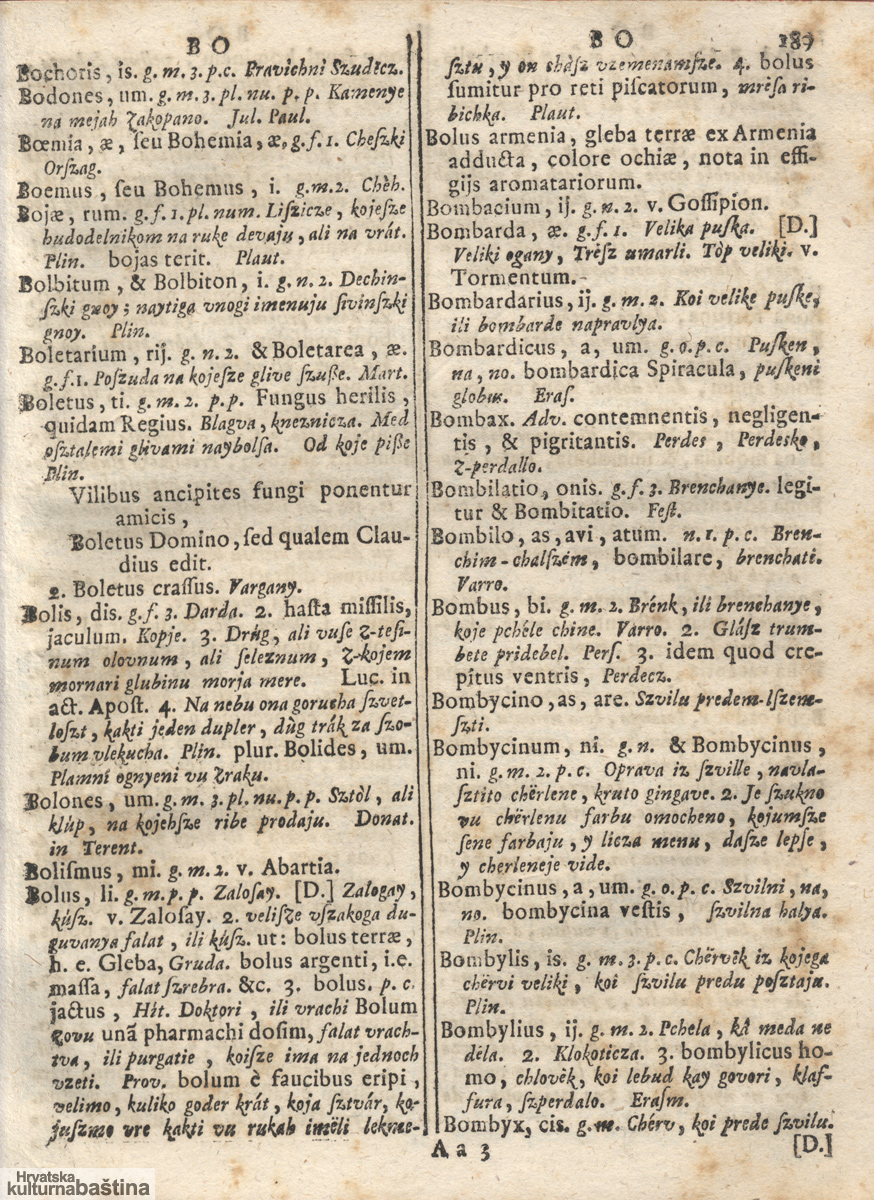 B O
Bochoris, is. g. m. 3. p. c. Pravichni Szudëcz.
Bodones, um. g. m. 3. pl. nu. p. p. Kamenye
na mejah Zakopano. Jul. Paul.
Bœmia, æ, ſeu Bohemia, æ, g. f. 1. Cheſzki
Orſzag.
Boemus, ſeu Bohemus, i. g. m. 2. Chèh.
Bojæ, rum. g. f. 1. pl. num. Liſzicze, kojeſze
hudodelnikom na ruke devaju, ali na vrát.
Plin. bojas terit. Plaut.
Bolbitum, & Bolbiton, i. g. n. 2. Dechin-
ſzki gnoy; naytiga vnogi imenuju ſivinſzki
gnoy. Plin.
Boletarium, rij. g. n. 2. & Boletarea, æ.
g. f. 1. Poſzuda na kojeſze glive ſzuſſe. Mart.
Boletus, ti. g. m. 2. p. p. Fungus herilis,
quidam Regius. Blagva, kneznicza. Med
oſztalemi glivami naybolſa. Od koje piſſe
Plin.
Vilibus ancipites fungi ponentur
amicis,
Boletus Domino, ſed qualem Clau-
dius edit.
2. Boletus craſſus. Vargany.
Bolis, dis. g. f. 3. Darda. 2. haſta miſſilis,
jaculum. Kopje. 3. Drúg, ali vuſe Z-teſi-
num olovnum, ali ſeleznum, Z-kojem
mornari glubinu morja mere. Luc. in
act. Apoſt. 4. Na nebu ona gorucha ſzvet-
loſzt, kakti jeden dupler, dùg trák za ſzo-
bum vlekucha. Plin. plur. Bolides, um.
Plamni ognyeni vu Zraku.
Bolones, um. g. m. 3. pl. nu. p. p. Sztòl, ali
klúp, na kojehſze ribe prodaju. Donat.
in Terent.
Boliſmus, mi. g. m. 2. v. Abartia.
Bolus, li. g. m. p. p. Zaloſay. [D.] Zalogay,
kúsz. v. Zaloſay. 2. veliſze vſzakoga du-
guvanya falat, ili kúsz. ut: bolus terræ,
h. e. Gleba, Gruda. bolus argenti, i.e.
maſſa, falat ſzrebra. &c. 3. bolus. p. c.
jactus, Hit. Doktori, ili vrachi Bolum
zovu unã pharmachi doſim, falat vrach-
tva, ili purgatie, koiſze ima na jednoch
vzeti. Prov. bolum è faucibus eripi,
velimo, kuliko goder krát, koja ſztvár, ko-
juſzmo vre kakti vu rukah imèli lekme-
B O 189
ſztu, y on vzemenamſze. 4. bolus
ſumitur pro reti piſcatorum, mrèſa ri-
bichka. Plaut.
Bolus armenia, gleba terræ ex Armenia
adducta, colore ochiæ, nota in effi-
gijs aromatariorum.
Bombacium, ij. g. n. 2. v. Goſſipion.
Bombarda, æ. g. f. 1. Velika puſka. [D.]
Veliki ogany, Trèſz umarli. Tòp veliki. v.
Tormentum.
Bombardarius, ij. g. m. 2. Koi velike puſke,
ili bombarde napravlya.
Bombardicus, a, um. g. o. p. c. Puſken,
na, no. bombardica Spiracula, puſkeni
globus. Eraſ.
Bombax. Adv. contemnentis, negligen-
tis, & pigritantis. Perdes, Perdesko,
Z-perdallo.
Bombilatio, onis. g. f. 3. Brenchanye. legi-
tur & Bombitatio. Feſt.
Bombilo, as, avi, atum. n. 1. p. c. Bren-
chim-chalſzém, bombilare, brenchati.
Varro.
Bombus, bi. g. m. 2. Brénk, ili brenchanye,
koje pchéle chine. Varro. 2. Gláſz trum-
bete pridebel. Perſ. 3. idem quod cre-
pitus ventris, Perdecz.
Bombycino, as, are. Szvilu predem-lſzem-
ſzti.
Bombycinum, ni. g. n. & Bombycinus,
ni. g. m. 2. p. c. Oprava iz ſzville, navla-
ſztito chërlene, kruto gingave. 2. Je ſzukno
vu chërlenu farbu omocheno, kojumſze
ſene farbaju, y licza menu, daſze lepſe,
y cherleneje vide.
Bombycinus, a, um. g. o. p. c. Szvilni, na,
no. bombycina veſtis, ſzvilna halya.
Plin.
Bombylis, is. g. m. 3. p. c. Chërvèk iz kojega
chërvi veliki, koi ſzvilu predu poſztaju.
Plin.
Bombylius, ij. g. m. 2. Pchela, kâ meda ne
déla. 2. Klokoticza. 3. bombylicus ho-
mo, chlovèk, koi lebud kay govori, klaf-
fura, ſzperdalo. Eraſm.
Bombyx, cis. g. m. Chérv, koi prede ſzvilu.
A a 3 [D.]
Hrvatska
kulturnabaština